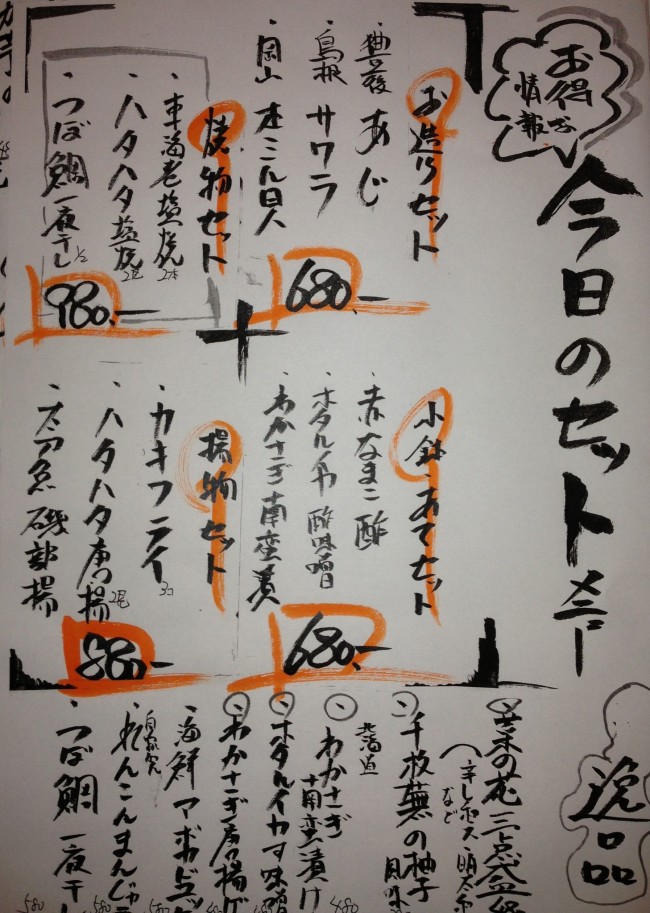 お得な
情報
今日のセットメニュー
お造りセット
・豊後 あじ
・島根 サワラ
・岡山
680.-
焼物セット
・車海老塩焼 2本
・ハタハタ塩焼 2尾
・つぼ鯛一夜干し 1/2
980.-
小鉢・あてセット
・赤なまこ酢
・ホタルイカ酢味噌
・わかさぎ南蛮漬
680.-
揚物セット
・カキフライ 3コ
・ハタハタ唐揚 2尾
・太刀魚磯部揚
880.-
逸品
菜の花三点盛
など
・千枚蕪の柚子
北海道
・わかさぎ
南蛮漬け
480
・ホタルイカ
・わかさぎ唐揚げ
・海鮮アボカド
自家製
・れんこんまんじゅう
580
・つぼ鯛一夜干
580